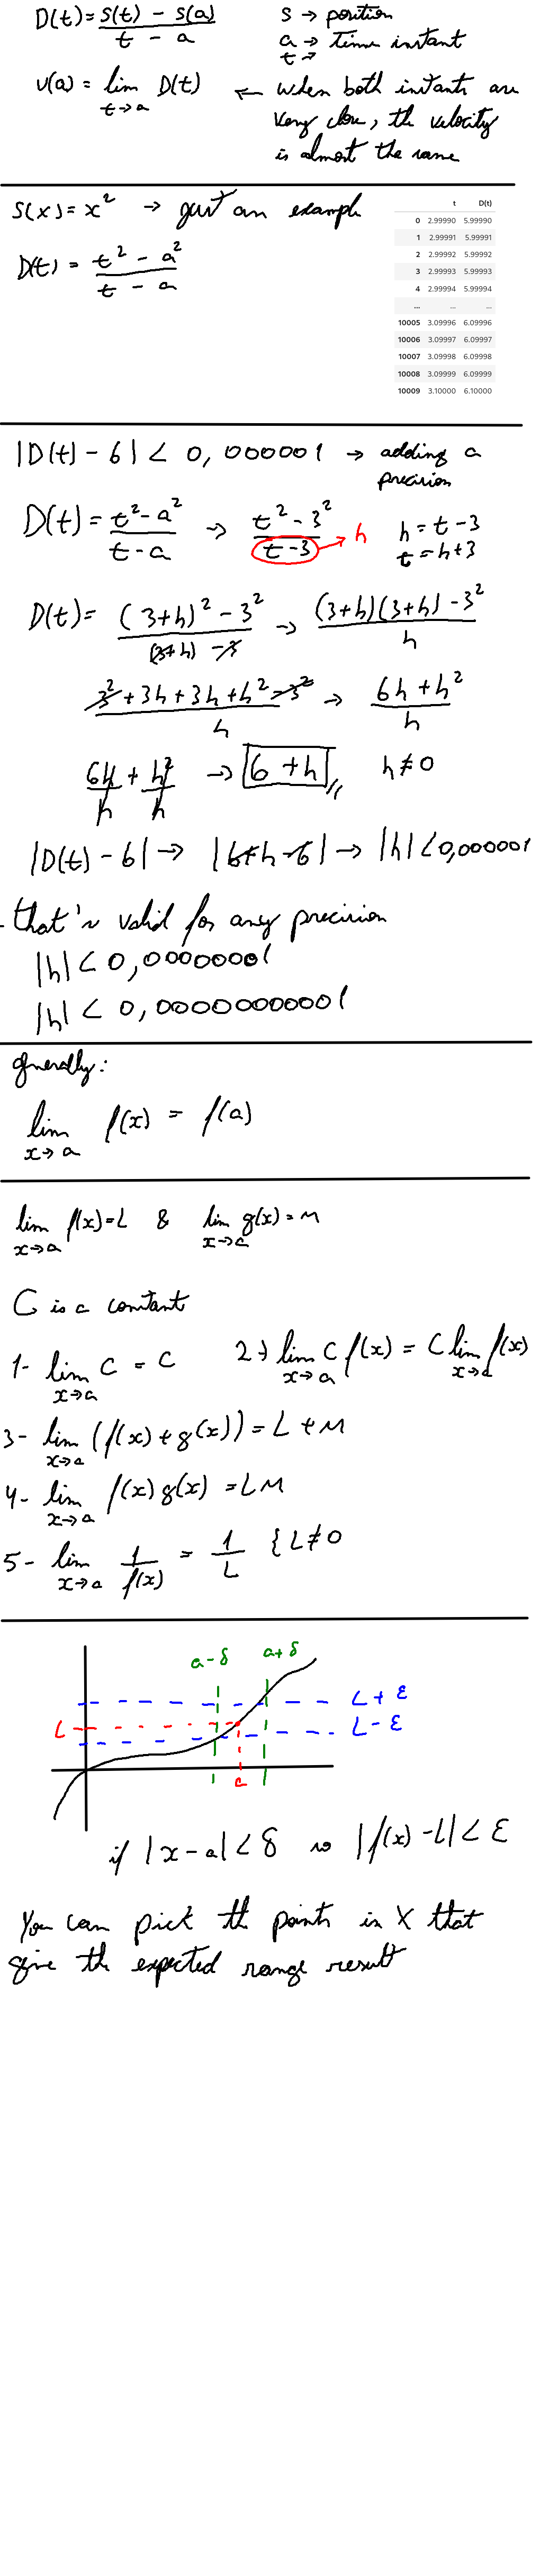 D(t) = s(t) - s(a) / t - a
S → position
a → time instant
t →
v(a) = lim t→a D(t) ← when both instants are
very close, the velocity
is almost the same
S(x) = x² → just an example
D(t) = t² - a² / t - a
t D(t)
0 2.99990 5.99990
1 2.99991 5.99991
2 2.99992 5.99992
3 2.99993 5.99993
4 2.99994 5.99994
... ... ...
10005 3.09996 6.09996
10006 3.09997 6.09997
10007 3.09998 6.09998
10008 3.09999 6.09999
10009 3.10000 6.10000
|D(t) - 6| < 0,000001 → adding a
precision
D(t) = t² - a² / t - a → t² - 3² / t - 3 → h
h = t - 3
t = h + 3
D(t) = (3+h)² - 3² / (3+h) - 3 → (3+h)(3+h) - 3² / h
3² + 3h + 3h + h² - 3² / h → 6h + h² / h
6h / h + h² / h → 6 + h h ≠ 0
|D(t) - 6| → |6+h-6| → |h| < 0,000001
- that's valid for any precision
|h| < 0,00000001
|h| < 0,00000000001
generally:
lim x→a f(x) = f(a)
lim x→a f(x) = L & lim x→a g(x) = M
C is a constant
1- lim x→a C = C 2→ lim x→a C f(x) = C lim x→a f(x)
3- lim x→a (f(x) + g(x)) = L + M
4- lim x→a f(x) g(x) = LM
5- lim x→a 1 / f(x) = 1 / L { L ≠ 0
a - δ a + δ
L + ε
L
L - ε
a
if |x - a| < δ so |f(x) - L| < ε
You can pick the points in X that
give the expected range result